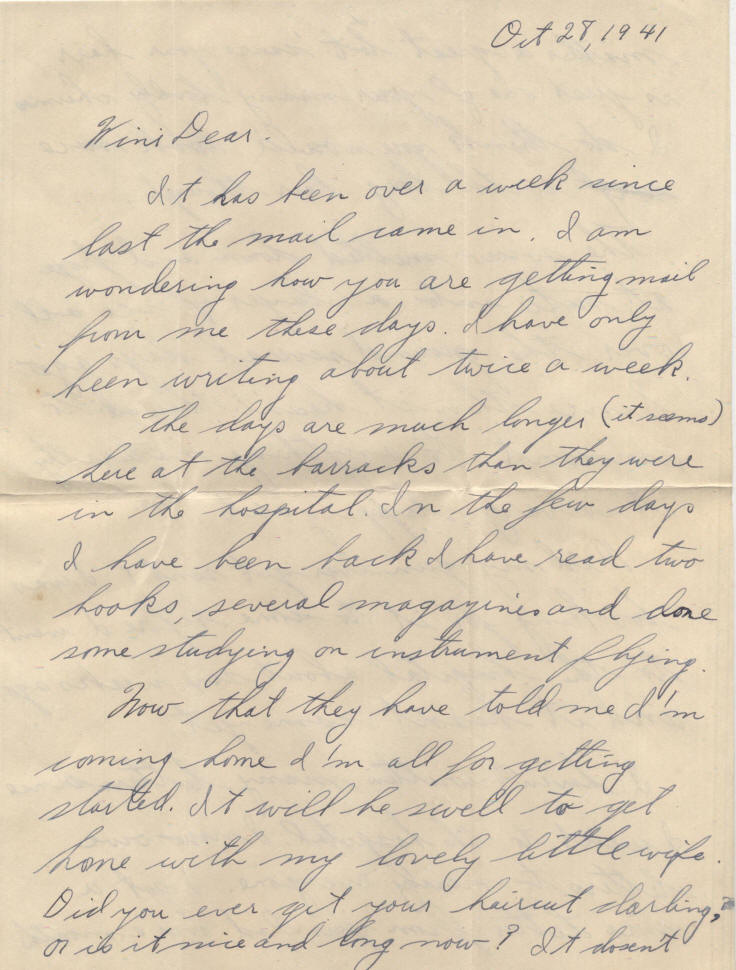 Oct 28, 1941
Wini Dear.
It has been over a week since
last the mail came in. I am
wondering how you are getting mail
from me these days. I have only
been writing about twice a week.
The days are much longer (it seems)
here at the barracks than they were
in the hospital. In the few days
I have been back I have read two
books, several magazines and done
some studying on instrument flying.
Now that they have told me I'm
coming home I'm all for getting
started. It will be swell to get
home with my lovely little wife.
Did you ever get your haircut darling,
or is it nice and long now? It dosent